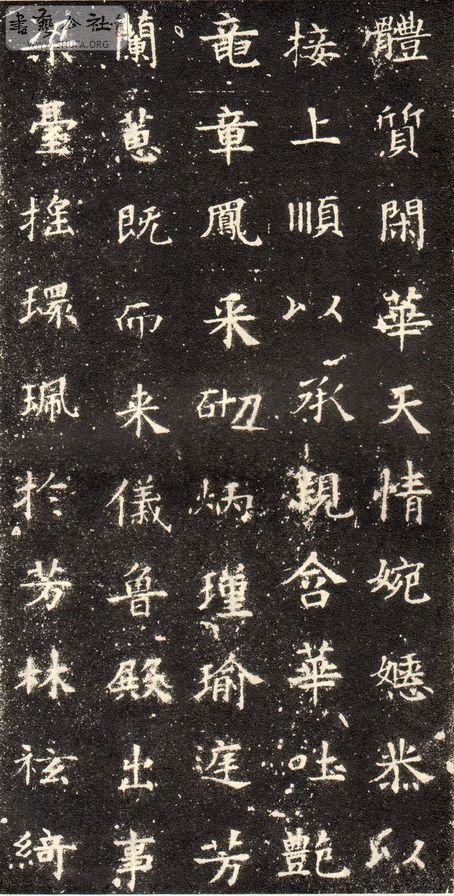 體質閑華天情婉嫕恭以
接上順以承親含華吐艷
龍章鳳采砌炳瑾瑜庭芳
蘭蕙既而来儀魯殿出事
梁臺搖環珮於芳林袨綺
書藝公社
WWW.SHUFA.ORG